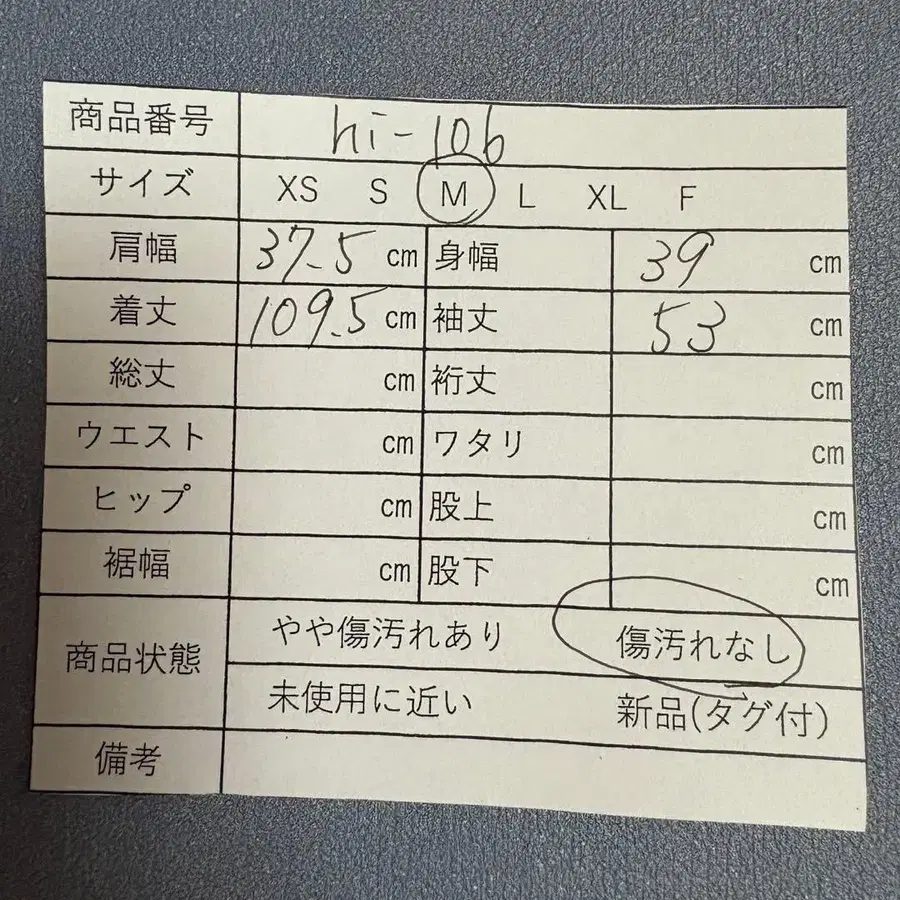 商品番号 hi-106
サイズ XS S M L XL F
肩幅 37.5 cm 身幅 39 cm
着丈 109.5 cm 袖丈 53 cm
総丈 cm 裄丈 cm
ウエスト cm ワタリ cm
ヒップ cm 股上 cm
裾幅 cm 股下 cm
商品状態 やや傷汚れあり 傷汚れなし
未使用に近い 新品(タグ付)
備考